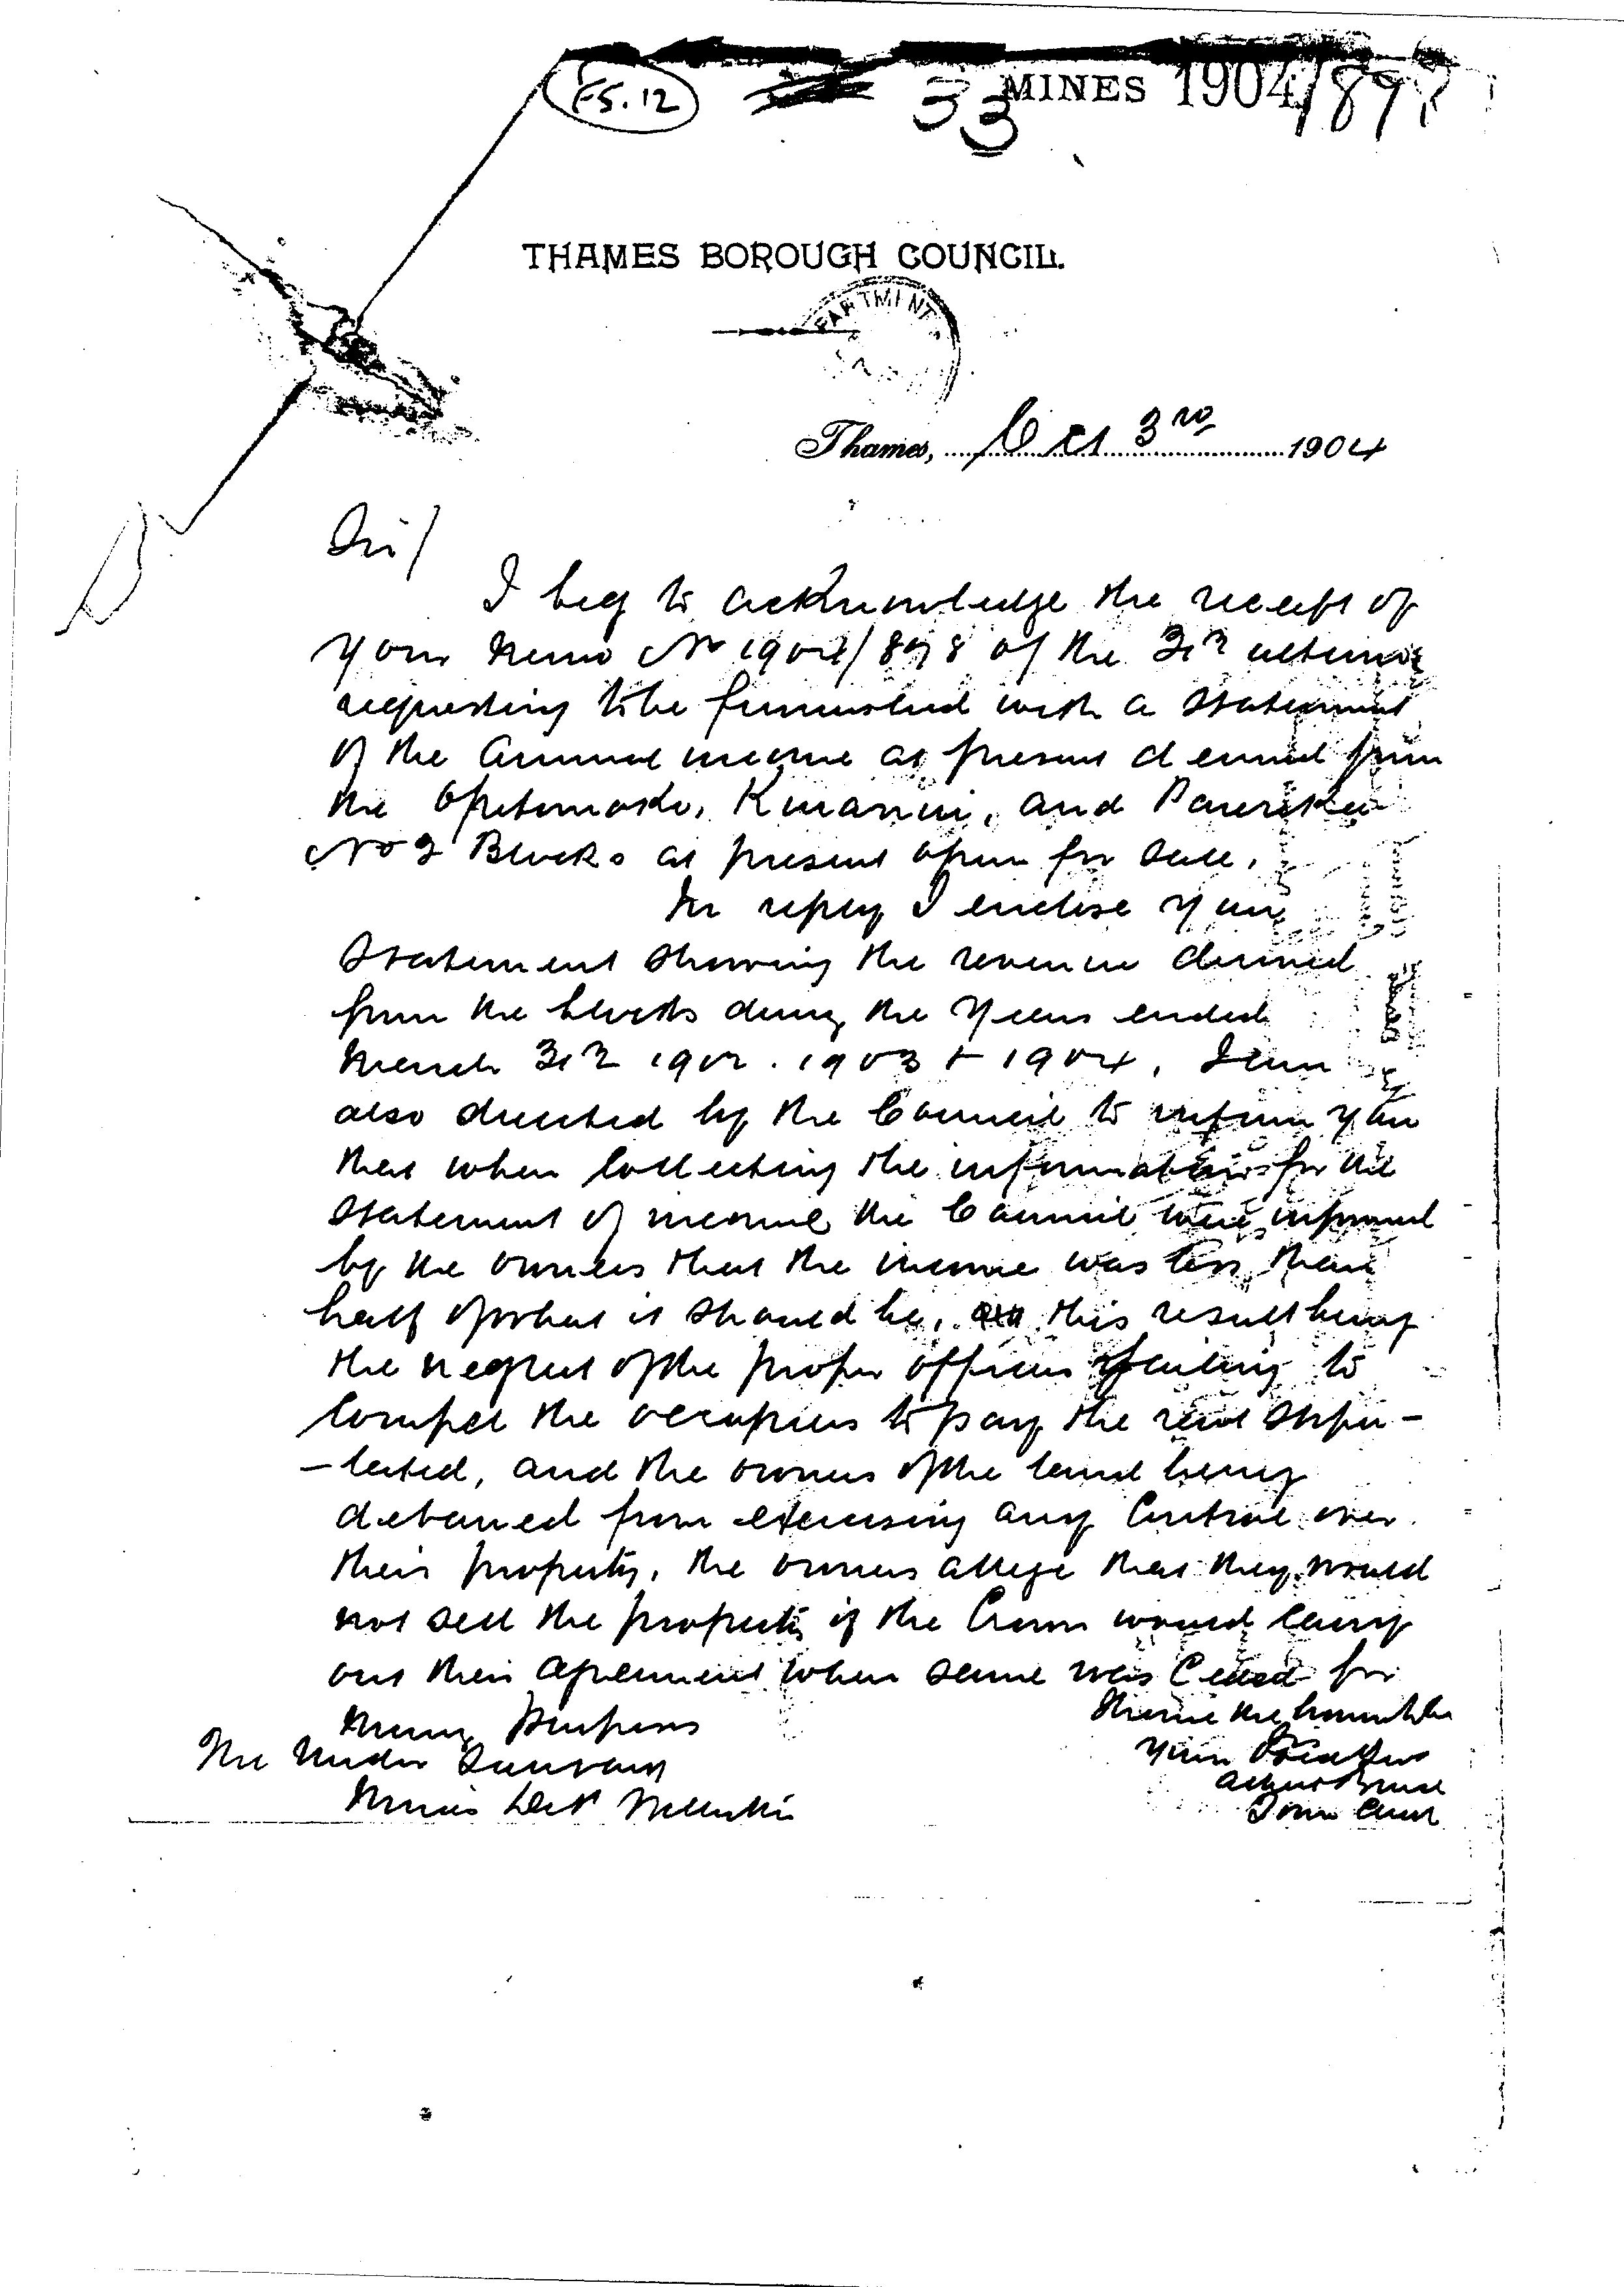 F5.12 33 MINES 1904/897
THAMES BOROUGH COUNCIL.
PARTMENT
Thames, Oct 3rd 1904
Sir/
I beg to acknowledge the receipt of
your memo No 1904/898 of the
requesting to be furnished with a statement
of the annual income at present derived from
the Opitomoko, Kuranui, and Parareka
No 2 Blocks at present open for sale.
In reply I enclose you
statement showing the revenue derived
from the blocks during the years ended
March 31st 1902. 1903 + 1904, I am
also directed by the Council to inform you
that when collecting the information for the
statement of income the Council were informed
by the owners that the income was less than
half of what it should be, this result being
the neglect of the proper officers failing to
compel the occupiers to pay the rent stipu-
-lated, and the owners of the land being
debarred from exercising any control over
their property, the owners allege that they would
not sell the property if the Crown would carry
out their agreement when same was ceded for
mining purposes
I have the honour to be
The Under Secretary
Your Obedient
Mines Dept Wellington
Bruce
Town Clerk